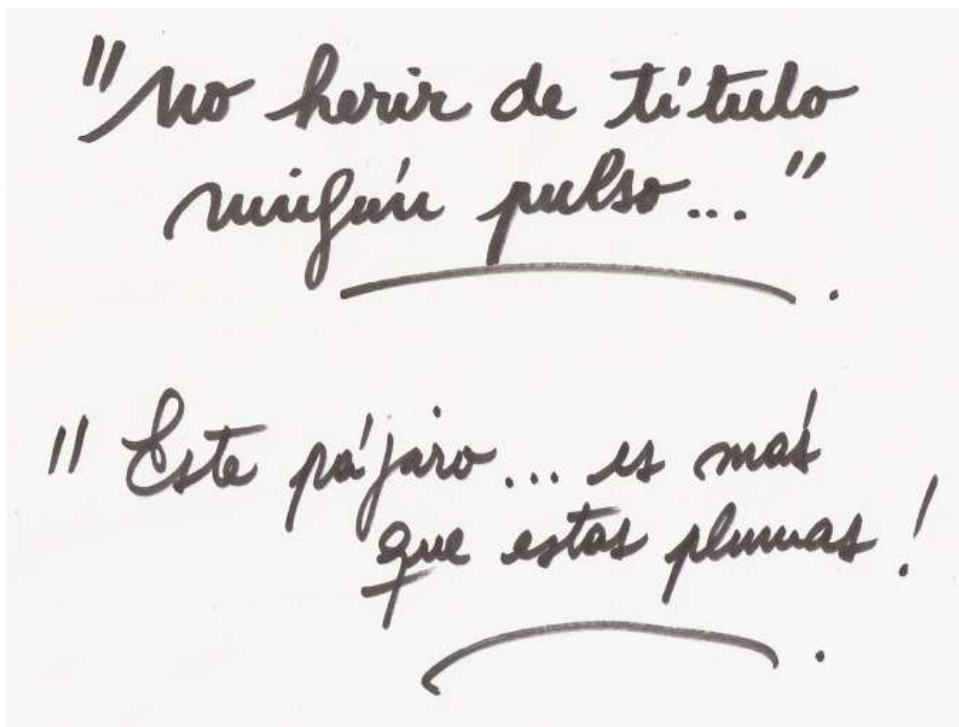 "no herir de título
ningún pulso..."
" Este pájaro... es más
que estas plumas!